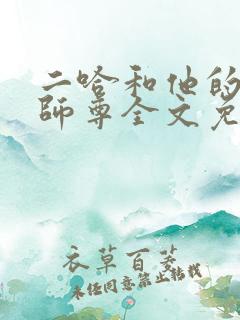 二哈和他的
師尊全文免
衣草百荟
未经同意禁止转载